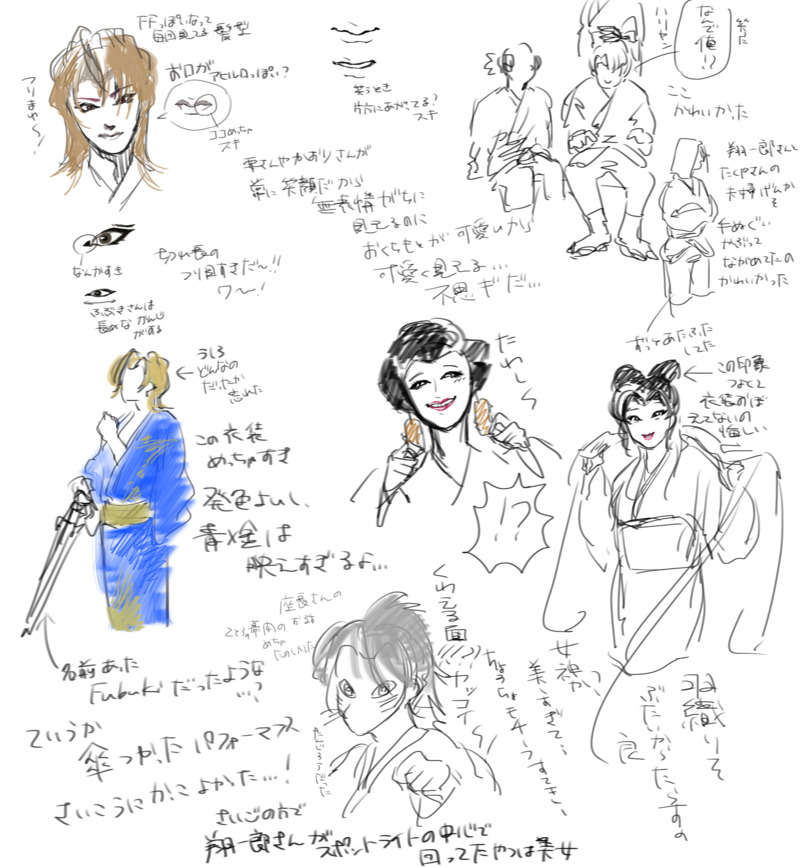 FFっぽいなって
毎回見てる髪型
つりまゆ〜!
お口が
アヒル口っぽい?
ココめっちゃ
スキ
笑うとき
片方にあがってる?
スキ
なんで俺!?
ハリセン
ここ
かわいかった
翔一郎さんと
たくやさんの
夫婦げんか
手ぬぐい
やぶって
ながめてたの
かわいかった
ずっとあたふた
してた
さんやかおりさんが
常に笑顔だから
無表情がちに
見えるのに
おくちもとが可愛いから
可愛く見える…
不思ギだ…
なんかすき
切れ長の
つり目すきだ〜!!
ワ〜!
ふぶきさんは
長めなかんじ
がする
うしろ
どんなの
だったか
忘れた
この衣装
めっちゃすき
発色よいし、
青×金は
映えすぎるよ…
たわし〜
!?
この印象
つよくて
衣装おぼ
えてないの
悔しい
名前あった
Fubukiだったような
…?
ていうか
傘つかったパフォーマンス
さいこうにかっこよかった…!
座長さんの
お話
めっちゃ
たのしかった
くわえる面
カッコイ〜
女神か?
美しすぎて…
ちょうちょモチーフすてき…
羽織りそ
ぶたいからたらすの
良
さいごの方で
翔一郎さんがスポットライトの中心で
回ってたやつは美女